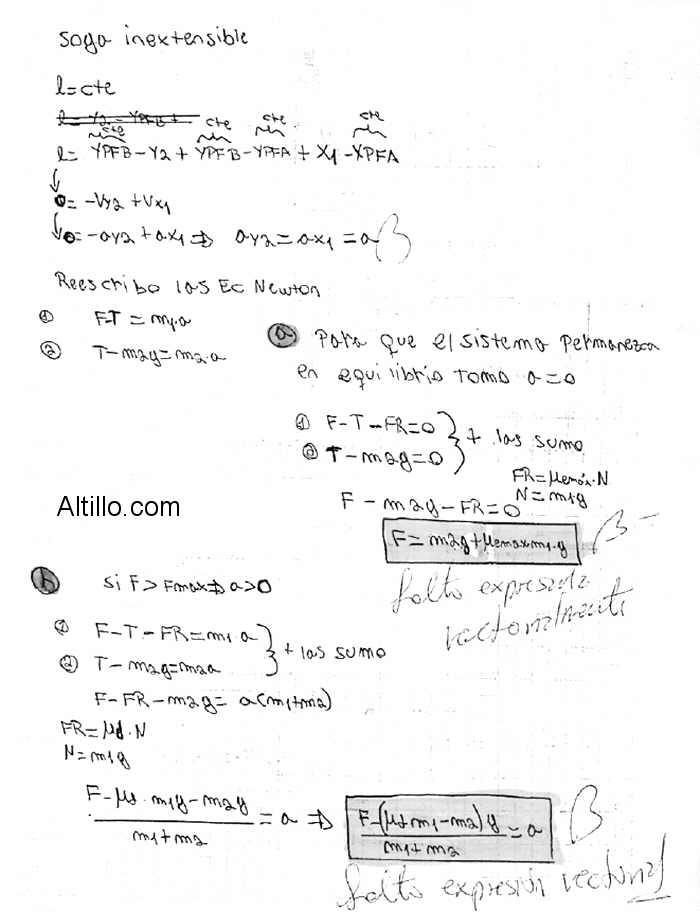 Soga inextensible
l=cte
l= Y2 - YPFB +
cte cte cte cte
l= YPFB-Y2 + YPFB-YPFA + X1-XPFA
0= -Vy2 +Vx1
0= -ay2 + ax1 => ay2 = ax1 = a B
Reescribo las Ec Newton
① F-T = m1.a
② T-m2g=m2.a
ⓐ Para que el sistema permanezca
en equilibrio tomo a=0
① F-T-FR=0
② T-m2g=0
} + las sumo
FR=μemáx.N
N=m1g
F - m2g - FR=0
F= m2g+μemax.m1.g B-
falto expresarla
vectorialmente
Altillo.com
ⓑ si F > Fmax => a>0
① F-T-FR=m1.a
② T-m2g=m2a
} + las sumo
F-FR-m2g= a(m1+m2)
FR=μd.N
N=m1g
F-μd.m1g-m2g / m1+m2 = a => F-(μd m1-m2)g / m1+m2 = a B
falto expresión vectorial